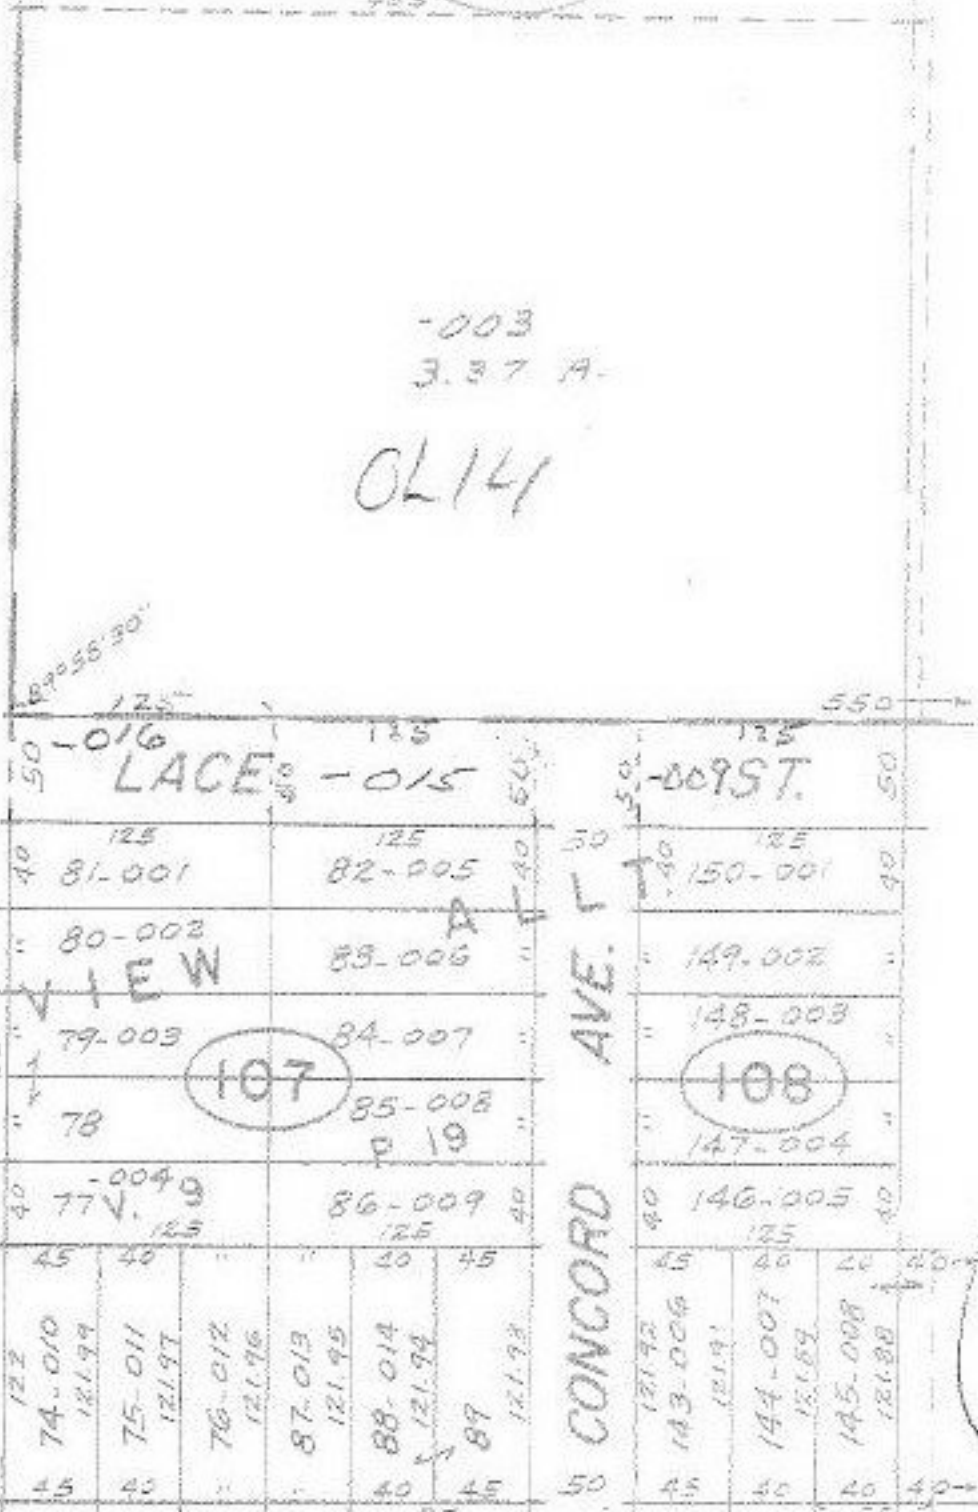 -003
3.37 A-
OL14
89°58'30"
125
550
-016
125
125
50
LACE
50
-015
50
50
-009 ST.
50
125
125
50
125
40
81-001
82-005
40
40
150-001
40
80-002
83-006
149-002
VIEW
ALLT
79-003
84-007
148-003
107
108
78
85-008
147-004
P 19
-004
40
77
V. 9
86-009
40
40
146-005
40
125
125
125
45
40
"
"
40
45
45
40
40
40
122
74-010
121.99
75-011
121.97
76-012
121.96
87-013
121.95
88-014
121.94
89
121.93
CONCORD AVE.
121.92
143-006
121.91
144-007
121.89
145-008
121.88
45
40
"
"
40
45
50
45
40
40
40